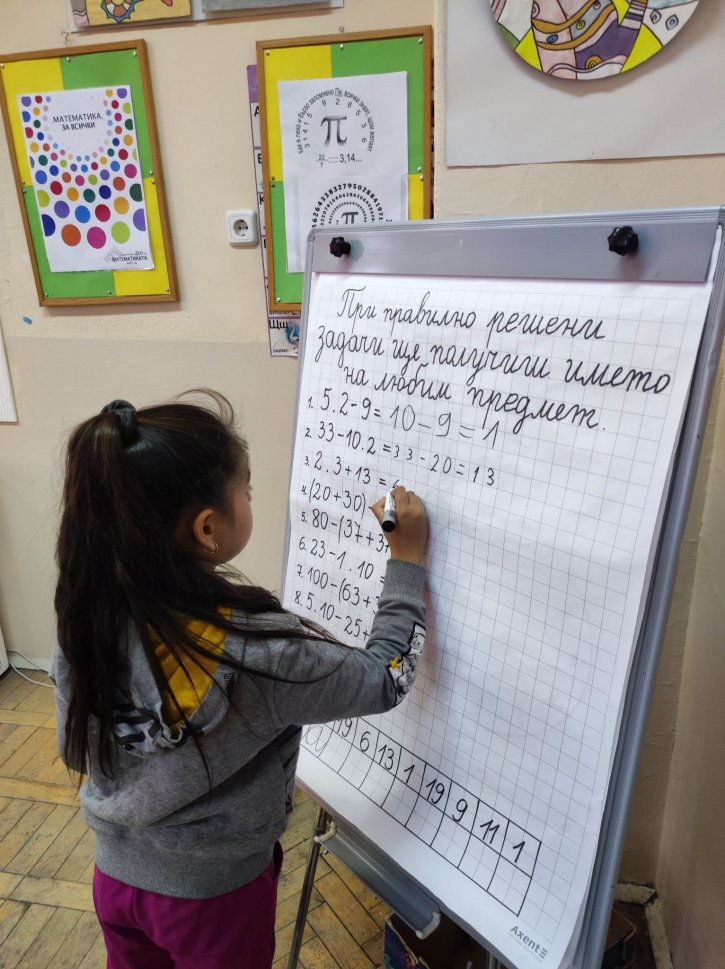 МАТЕМАТИКА
ЗА ВСИЧКИ
МАТЕМАТИКАТА
π
22/7 = 3,14...
π
При правилно решени
задачи ще получиш името
на любим предмет.
1. 5.2-9= 10-9=1
2. 33-10.2=33-20=13
3. 2.3+13=
4. (20+30)
5. 80-(37+37
6. 23-1.10=
7. 100-(63+
8. 5.10-25+
19 6 13 1 19 9 11 1
Axent